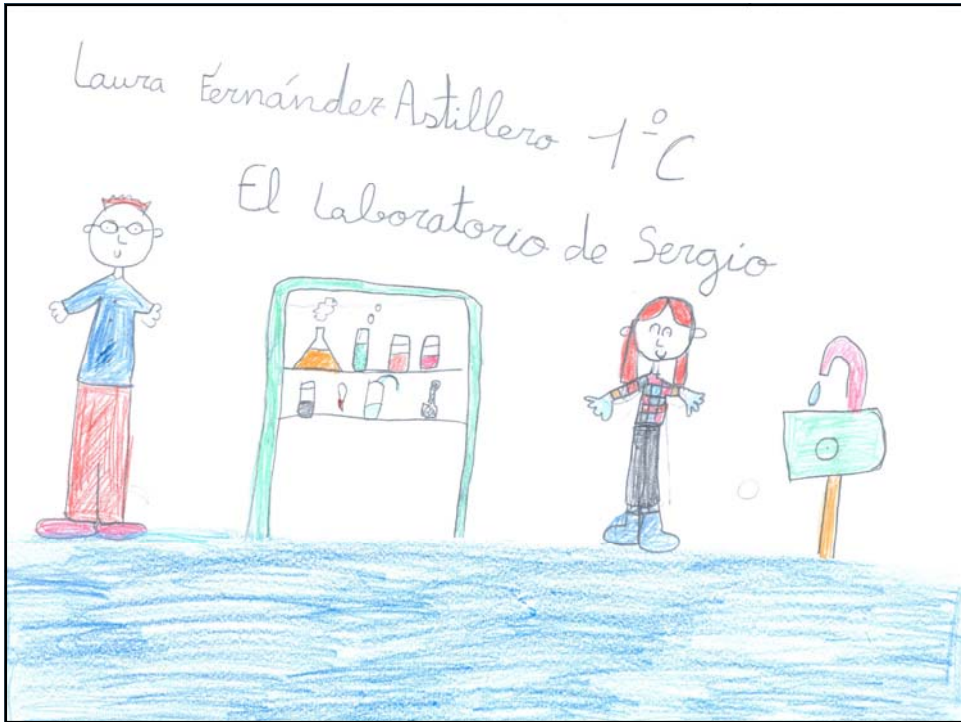 Laura Férnández Astillero 1º C
El Laboratorio de Sergio